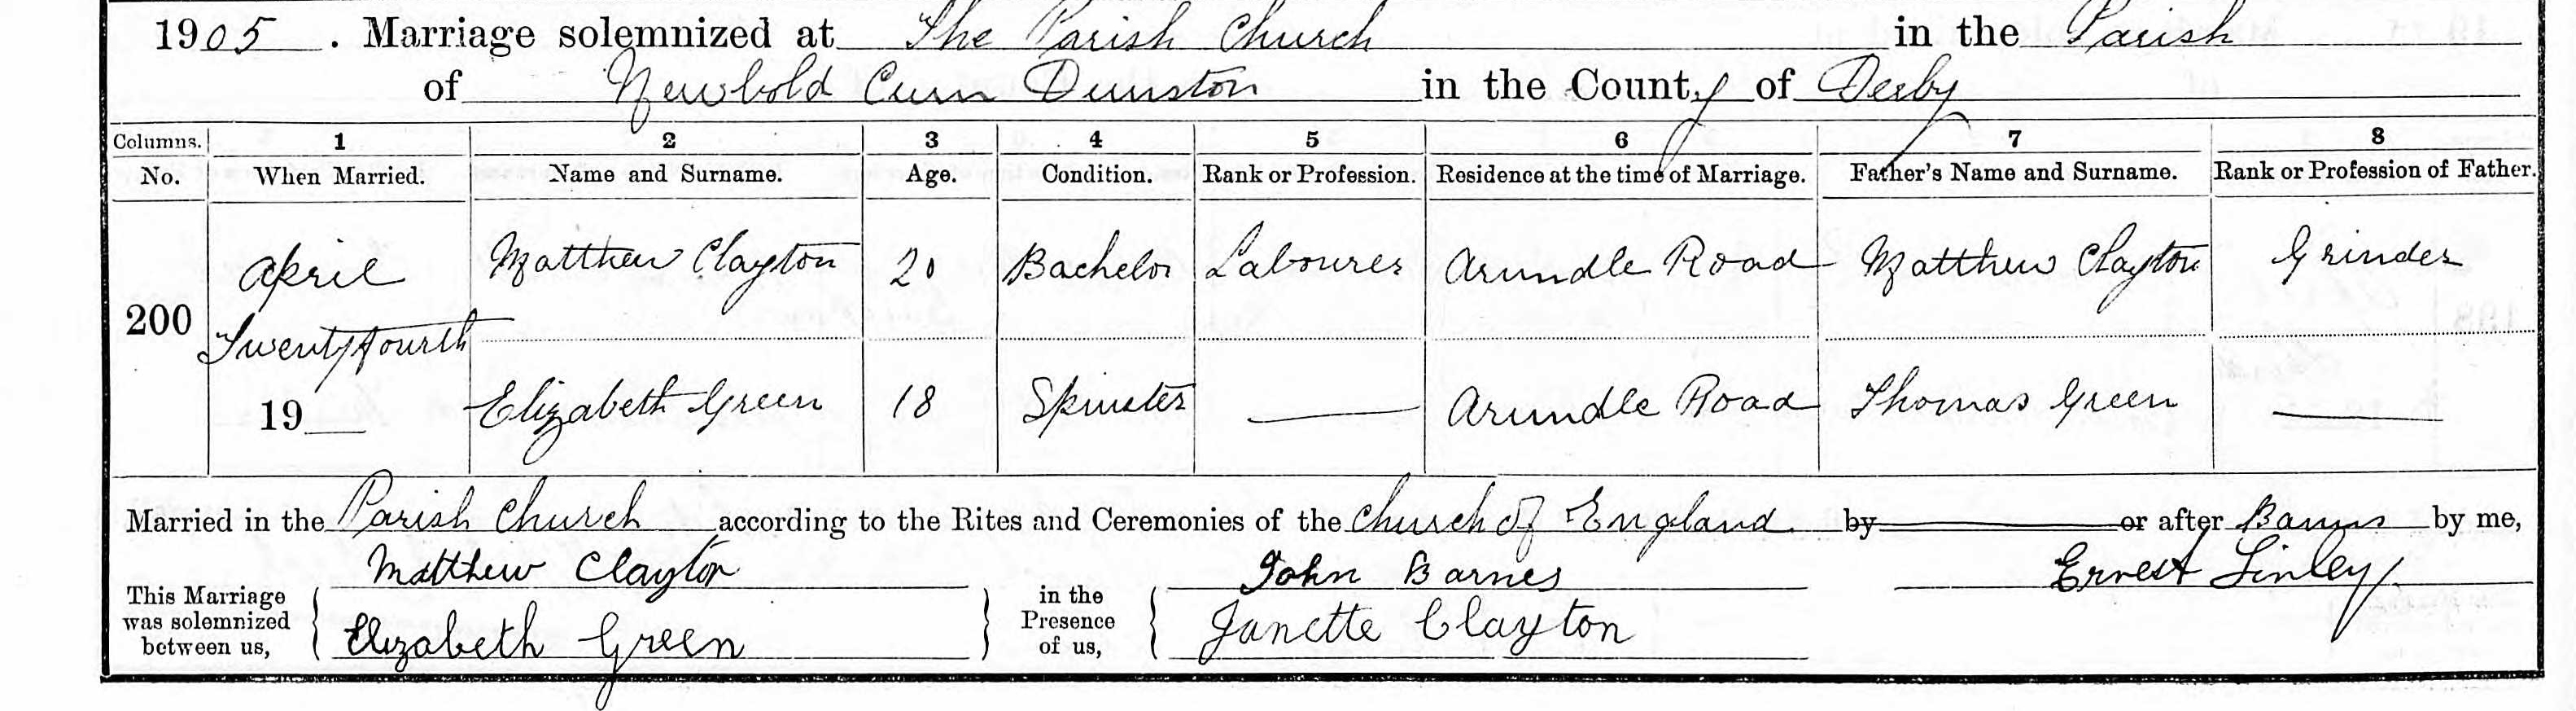 1905. Marriage solemnized at The Parish Church in the Parish
of Newbold Cum Dunston in the County of Derby
Columns. 1 2 3 4 5 6 7 8
No. When Married. Name and Surname. Age. Condition. Rank or Profession. Residence at the time of Marriage. Father's Name and Surname. Rank or Profession of Father.
200 April Twentyfourth 19__
Matthew Clayton 20 Bachelor Labourer Arundle Road Matthew Clayton Grinder
Elizabeth Green 18 Spinster — Arundle Road Thomas Green —
Married in the Parish Church according to the Rites and Ceremonies of the Church of England by or after Banns by me,
This Marriage was solemnized between us, Matthew Clayton Elizabeth Green in the Presence of us, John Barnes Janette Clayton Ernest Linley